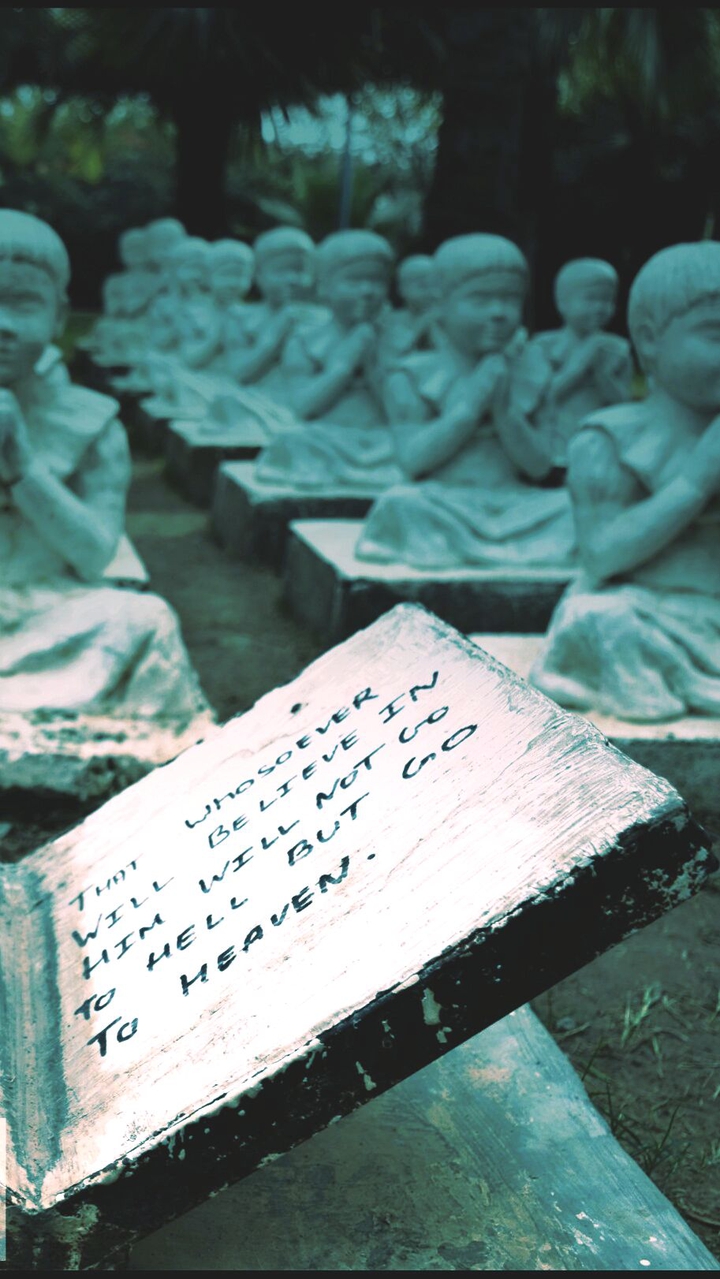 THAT WHOSOEVER
WILL BELIEVE IN
HIM WILL NOT GO
TO HELL BUT GO
TO HEAVEN.